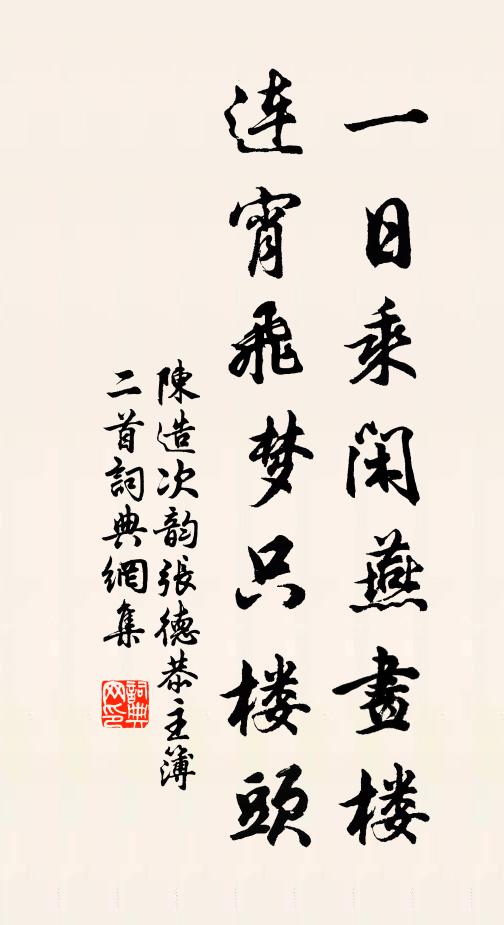 一日乘闲燕畫楼
连宵飛梦只楼頭
陳造次韵張德恭主簿
二首詞典網集
詞典网印